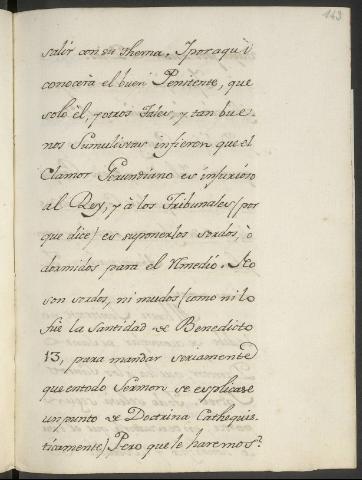 143
salir con su thema. Y por aqui
conocerà el buen Penitente, que
solo èl, y otros tales, y tan bue-
nos Sumulistas infieren que el
Clamor Gerundiano es injurioso
al Rey, y à los Tribunales (por
que dice) es suponerlos sordos, ò
dormidos para el remedio. No
son sordos, ni mudos (como ni lo
fue la Santidad de Benedicto
13, para mandar seriamente
que en todo Sermon se explicase
un punto de Doctrina Cathequis-
ticamente) Pero que le haremos?